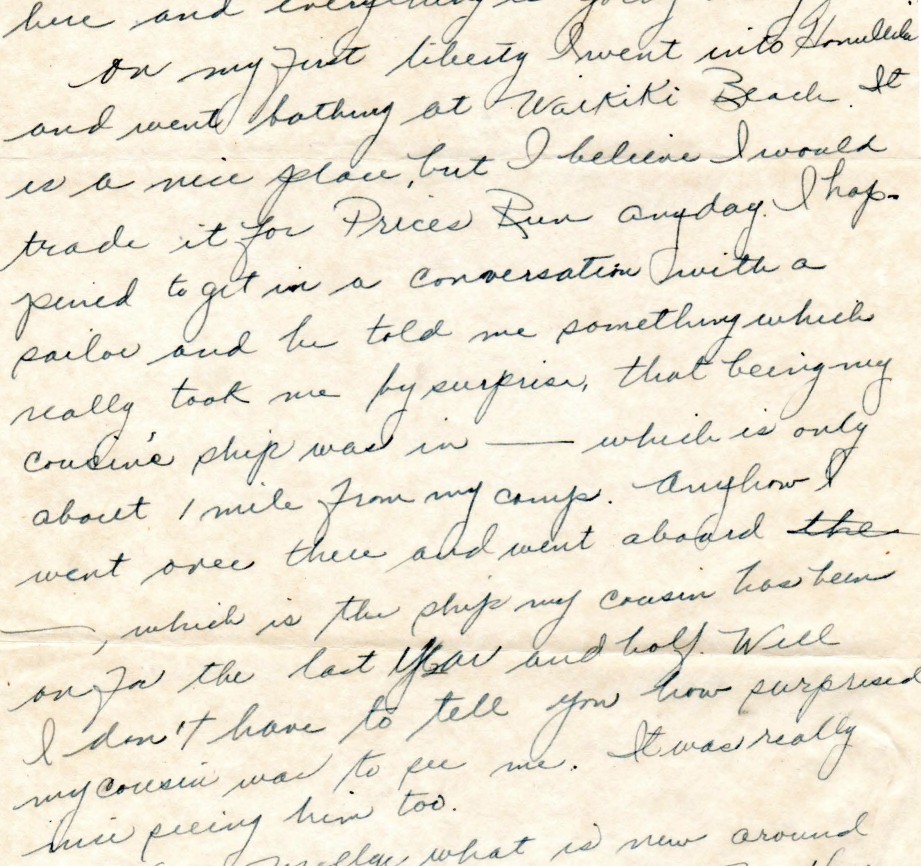 here and everything is
On my first liberty I went into Honolulu
and went bathing at Waikiki Beach. It
is a nice place, but I believe I would
trade it for Prices Run anyday. I hap-
pened to get in a conversation with a
sailor and he told me something which
really took me by surprise, that being my
cousin's ship was in —— which is only
about 1 mile from my camp. Anyhow I
went over there and went aboard the
——, which is the ship my cousin has been
on for the last year and half. Well
I don't have to tell you how surprised
my cousin was to see me. It was really
nice seeing him too.
what is new around